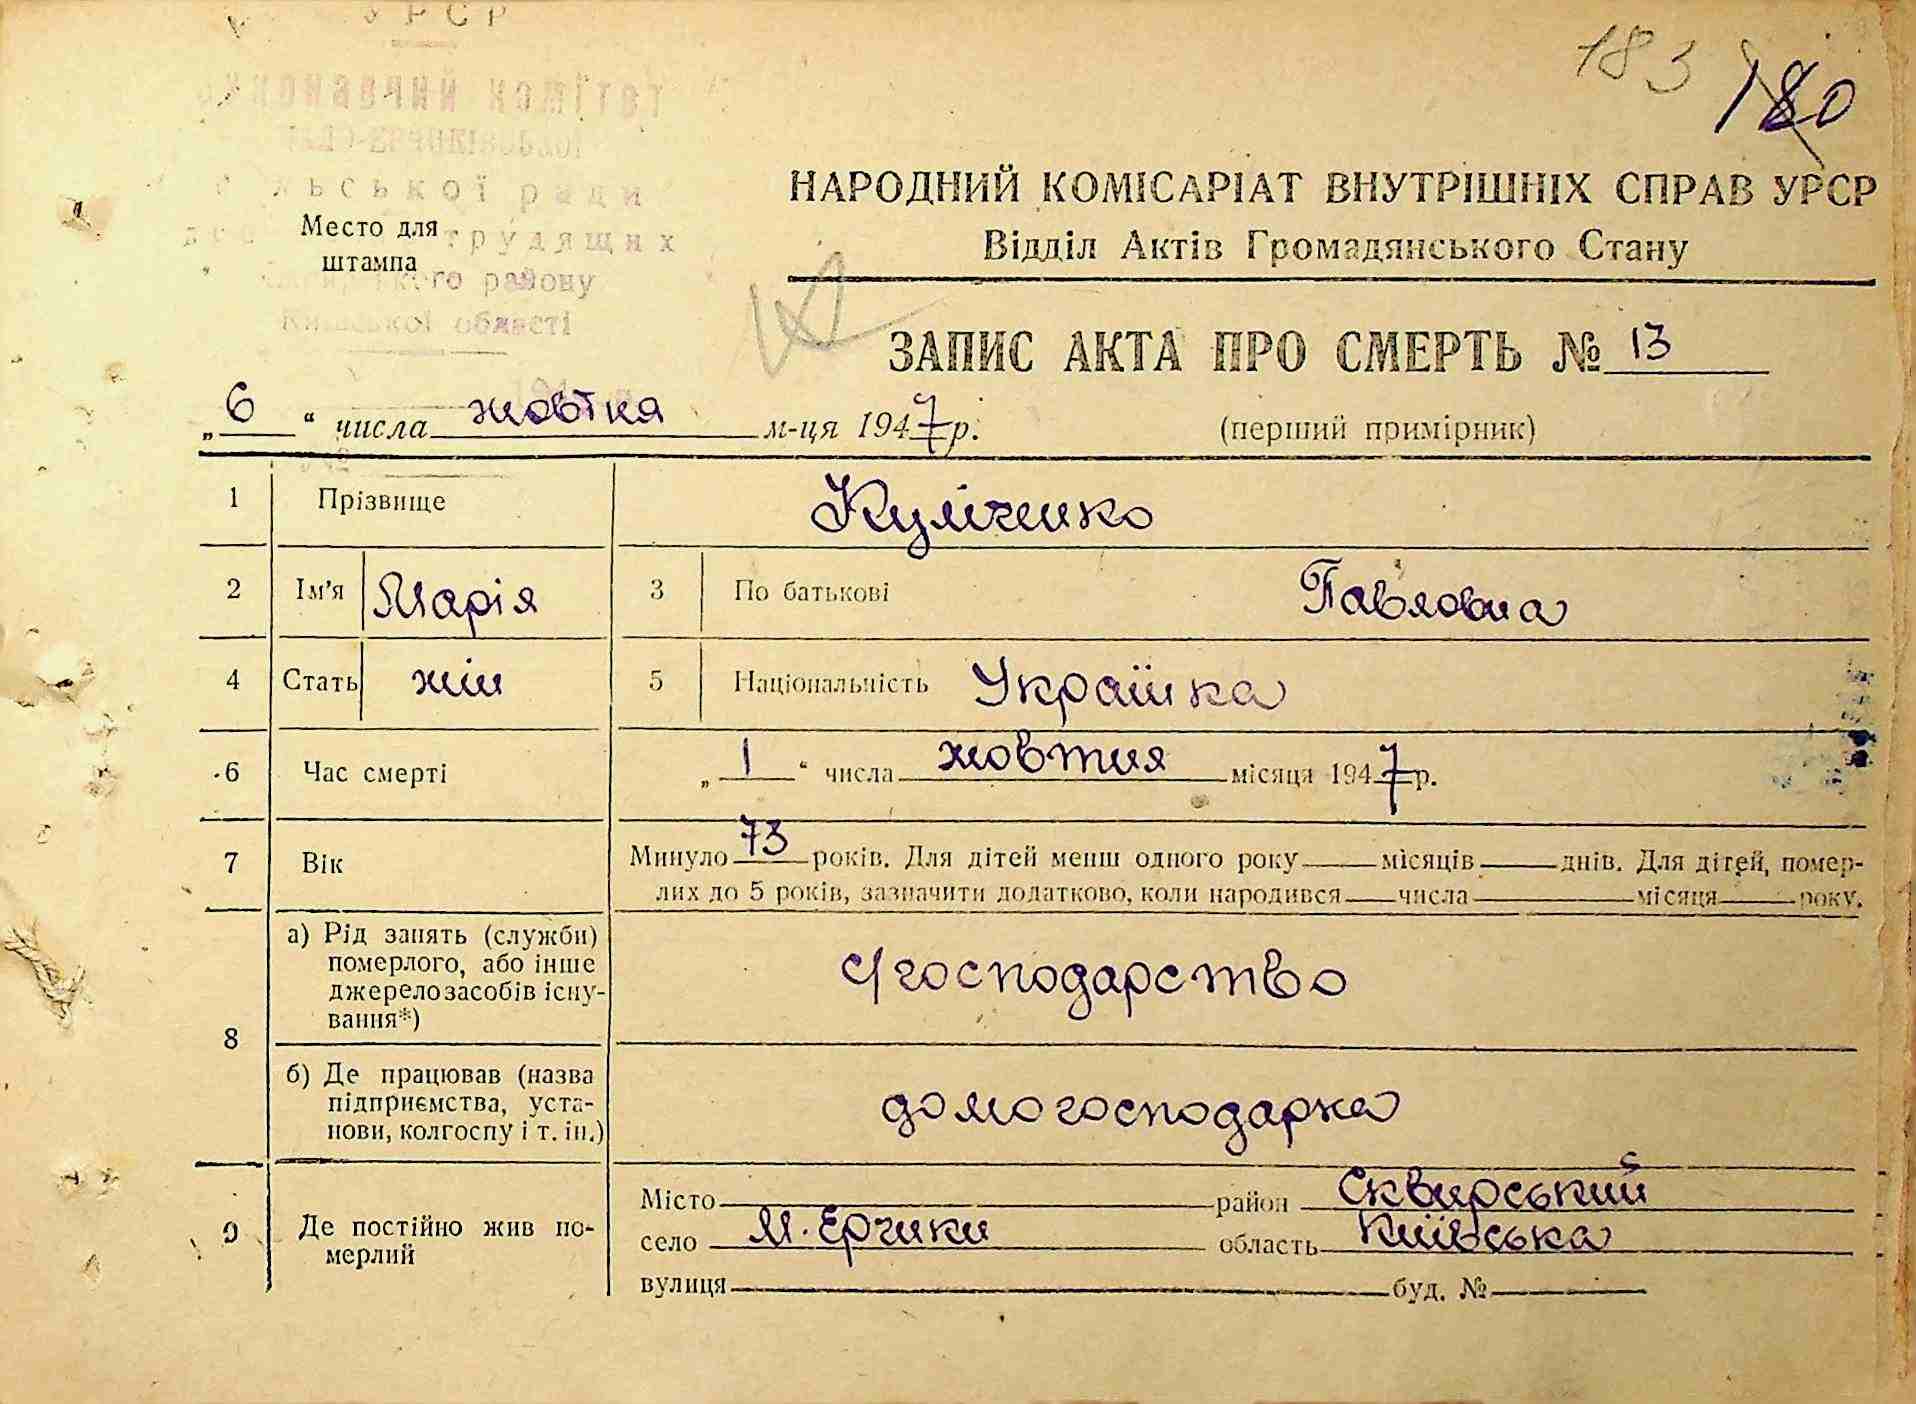 УРСР
183 180
виконавчий комітет
сільської ради
НАРОДНИЙ КОМІСАРІАТ ВНУТРІШНІХ СПРАВ УРСР
Место для трудящих
штампа
Відділ Актів Громадянського Стану
району
Київської області
ЗАПИС АКТА ПРО СМЕРТЬ № 13
„ 6 “ числа жовтня м-ця 1947 р. (перший примірник)
1 Прізвище Куліченко
2 Ім'я Марія 3 По батькові Павловна
4 Стать жін 5 Національність Українка
6 Час смерті „ 1 “ числа жовтня місяця 1947 р.
7 Вік Минуло 73 років. Для дітей менш одного року місяців днів. Для дітей, помер-
лих до 5 років, зазначити додатково, коли народився числа місяця року.
8 а) Рід занять (служби)
померлого, або інше
джерело засобів існу-
вання*)
с/господарство
б) Де працював (назва
підприємства, уста-
нови, колгоспу і т. ін.)
домогосподарка
9 Де постійно жив по-
мерлий
Місто район Сквирський
село М. Єрчики область Київська
вулиця буд. №